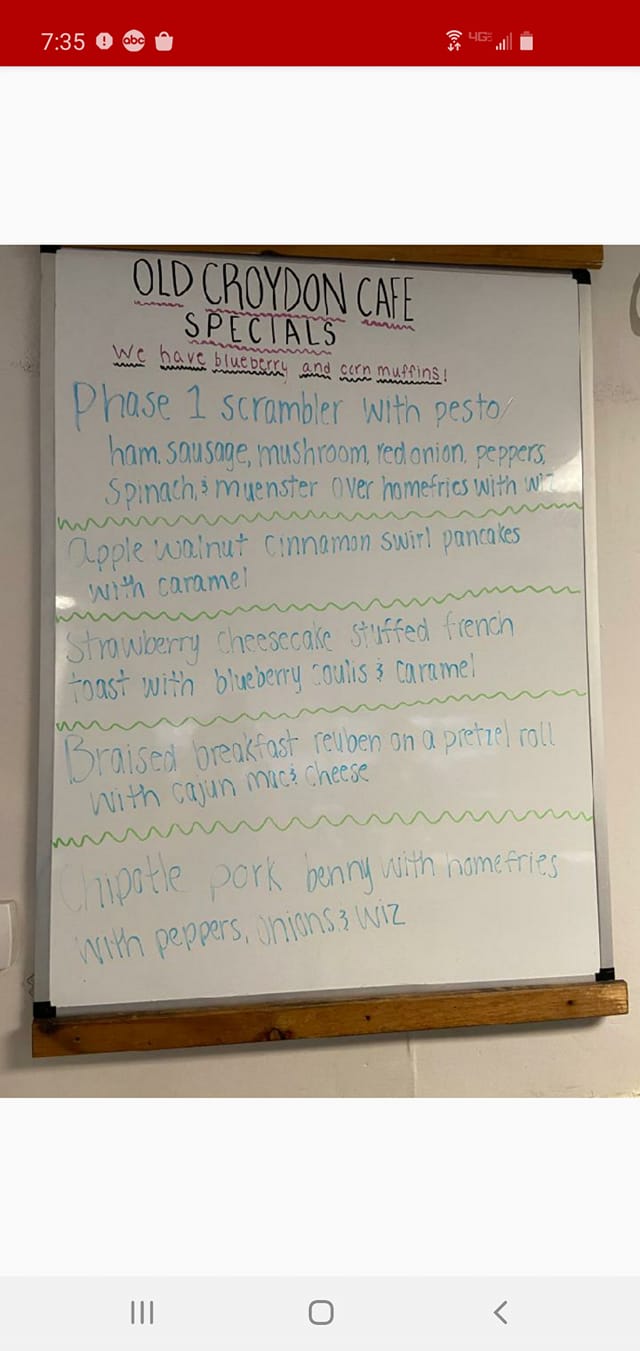 7:35 abc 4GE
OLD CROYDON CAFE
SPECIALS
We have blueberry and corn muffins!
Phase 1 scrambler with pesto,
ham, sausage, mushroom, red onion, peppers,
Spinach, & muenster over homefries with wiz
apple walnut cinnamon swirl pancakes
with caramel
Strawberry cheesecake stuffed french
toast with blueberry coulis & caramel
Braised breakfast reuben on a pretzel roll
with cajun mac & cheese
Chipotle pork benny with homefries
with peppers, onions, & wiz